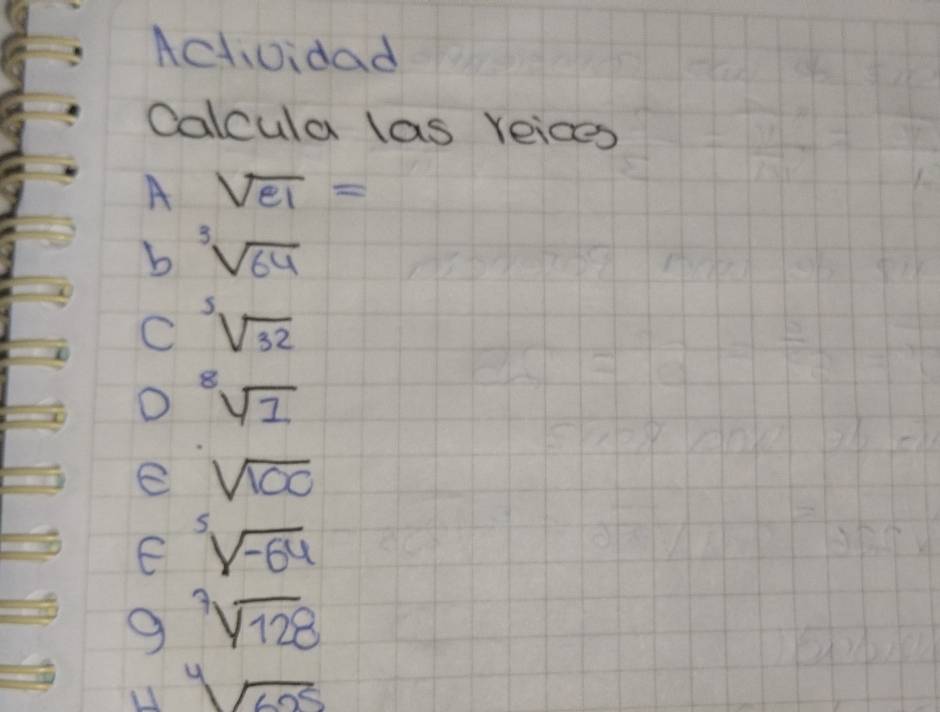 Actividad
Calcula las reices
A √81 =
b ³√64
C ⁵√32
D ⁸√1
E √100
F ⁵√-64
g ⁷√128
H ⁴√625